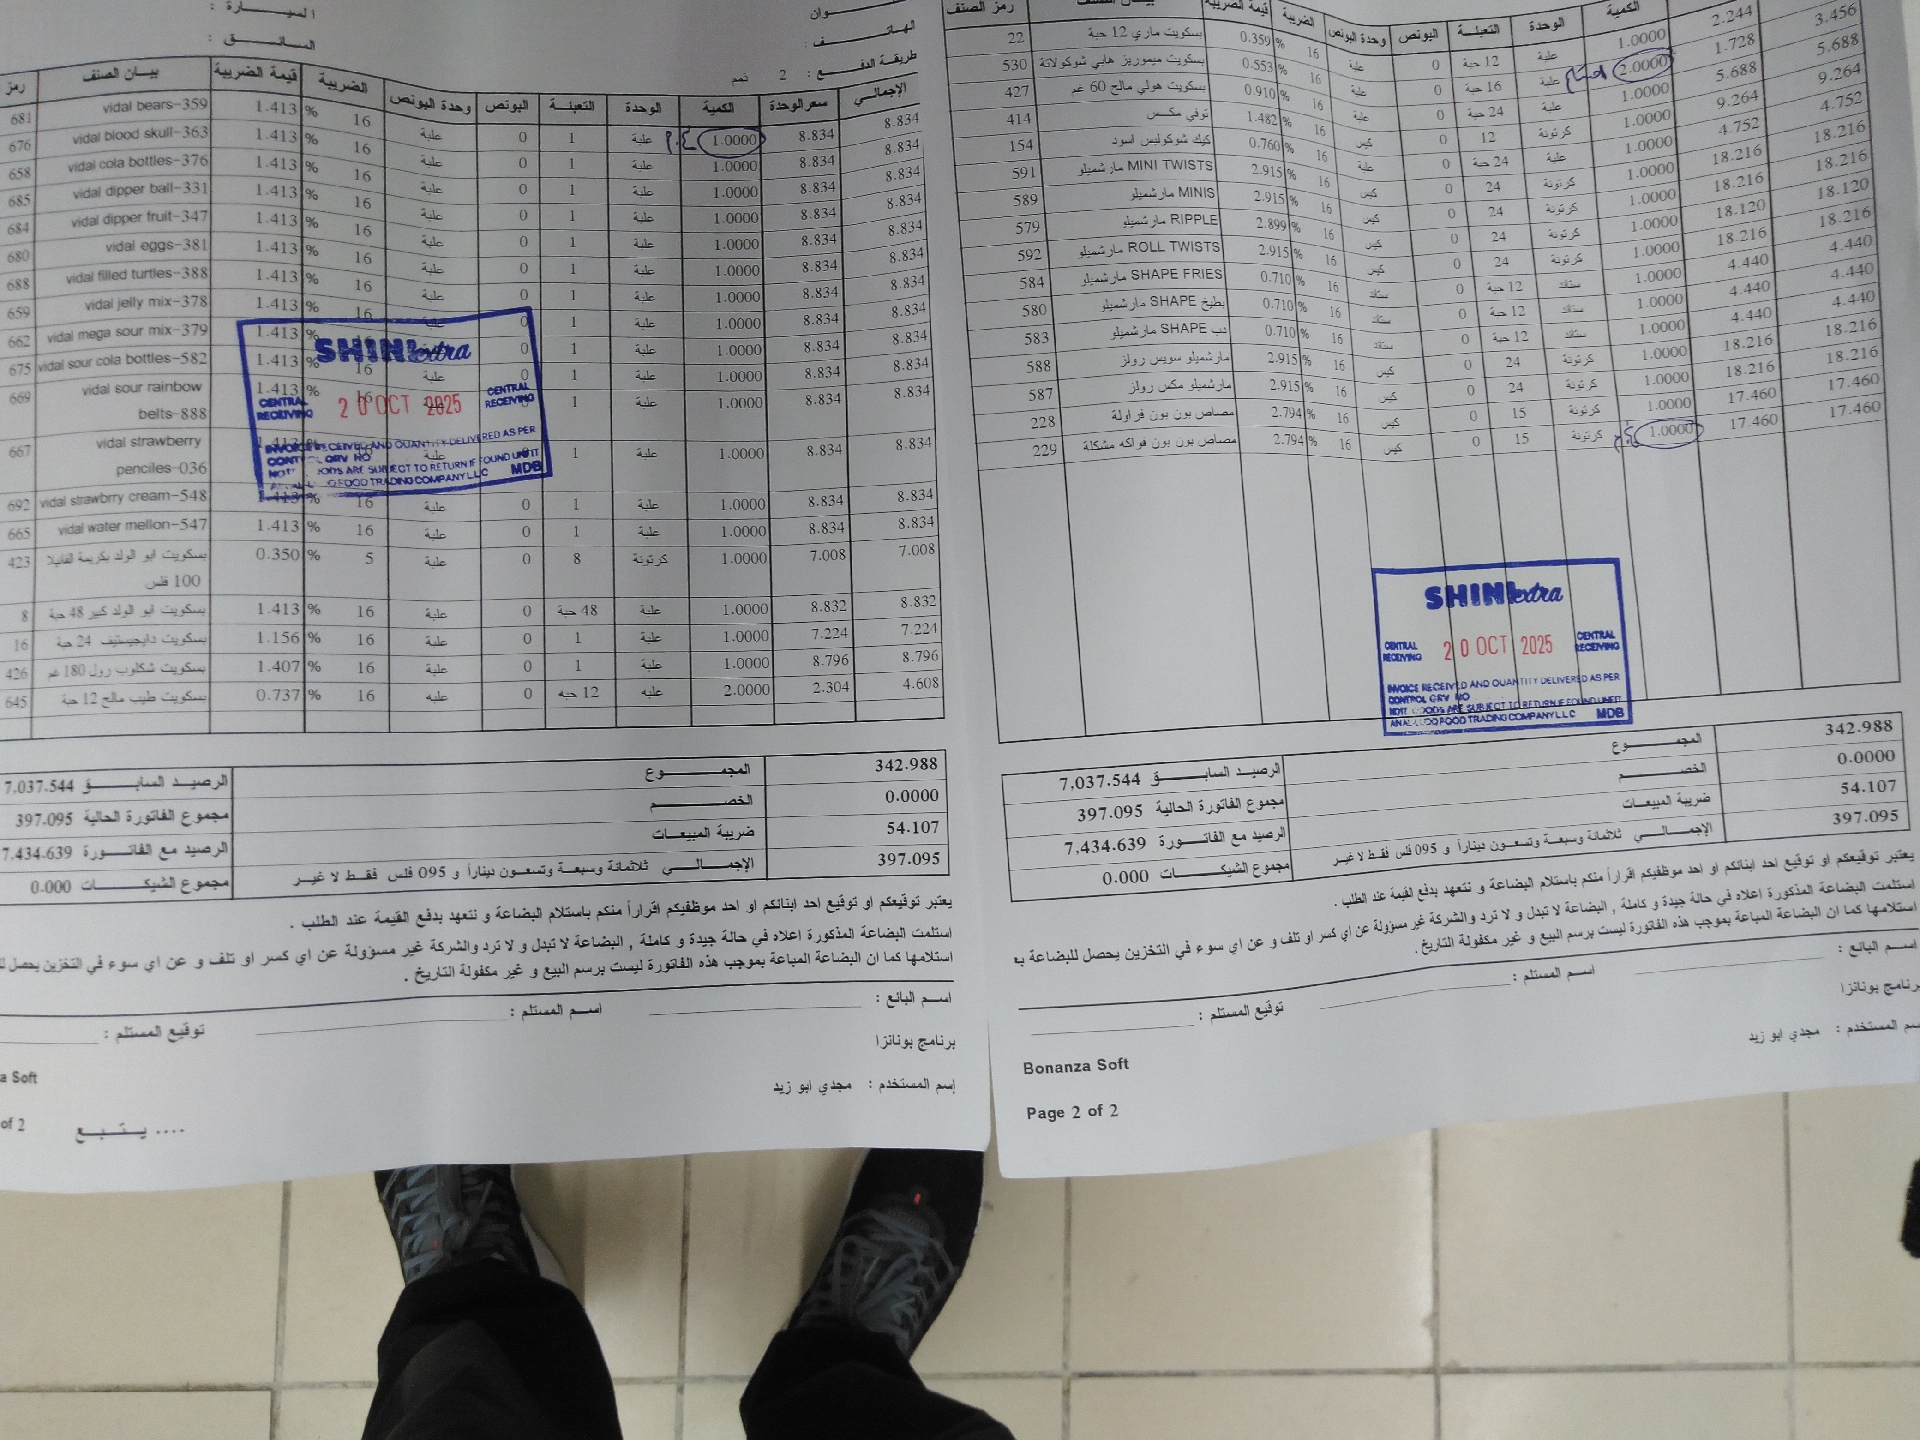 السيارة :
السائق :
رمز
بيان الصنف
قيمة الضريبة
الضريبة
وحدة البونص
البونص
التعبئة
الوحدة
الكمية
سعر الوحدة
الإجمالي
681 vidal bears-359 1.413 % 16 علبة 0 1 علبة 1.0000 8.834 8.834
676 vidal blood skull-363 1.413 % 16 علبة 0 1 علبة 1.0000 8.834 8.834
658 vidal cola bottles-376 1.413 % 16 علبة 0 1 علبة 1.0000 8.834 8.834
685 vidal dipper ball-331 1.413 % 16 علبة 0 1 علبة 1.0000 8.834 8.834
684 vidal dipper fruit-347 1.413 % 16 علبة 0 1 علبة 1.0000 8.834 8.834
680 vidal eggs-381 1.413 % 16 علبة 0 1 علبة 1.0000 8.834 8.834
688 vidal filled turtles-388 1.413 % 16 علبة 0 1 علبة 1.0000 8.834 8.834
659 vidal jelly mix-378 1.413 % 16 علبة 0 1 علبة 1.0000 8.834 8.834
662 vidal mega sour mix-379 1.413 % 16 علبة 0 1 علبة 1.0000 8.834 8.834
675 vidal sour cola bottles-582 1.413 % 16 علبة 0 1 علبة 1.0000 8.834 8.834
669 vidal sour rainbow 1.413 % 16 علبة 0 1 علبة 1.0000 8.834 8.834
belts-888
667 vidal strawberry 1 علبة 1.0000 8.834 8.834
penciles-036
692 vidal strawbrry cream-548 1.413 % 16 علبة 0 1 علبة 1.0000 8.834 8.834
665 vidal water mellon-547 1.413 % 16 علبة 0 1 علبة 1.0000 8.834 8.834
423 بسكويت ابو الولد بكريمة الفانيلا 0.350 % 5 علبة 0 8 كرتونة 1.0000 7.008 7.008
100 فلس
8 بسكويت ابو الولد كبير 48 حبة 1.413 % 16 علبة 0 48 حبة علبة 1.0000 8.832 8.832
16 بسكويت دايجيستيف 24 حبة 1.156 % 16 علبة 0 1 علبة 1.0000 7.224 7.224
426 بسكويت شكلوب رول 180 غم 1.407 % 16 علبة 0 1 علبة 1.0000 8.796 8.796
645 بسكويت طيب مالح 12 حبة 0.737 % 16 علبه 0 12 حبه علبه 2.0000 2.304 4.608
SHINI extra
CENTRAL RECEIVING
20 OCT 2025
CENTRAL RECEIVING
INVOICE RECEIVED AND QUANTITY DELIVERED AS PER
CONT GRV NO
GOODS ARE SUBJECT TO RETURN IF FOUND UNFIT
FOOD TRADING COMPANY LLC MDB
المجموع 342.988
الخصم 0.0000
ضريبة المبيعات 54.107
الإجمالي ثلاثمائة وسبعة وتسعون ديناراً و 095 فلس فقط لا غير 397.095
الرصيد السابق 7,037.544
مجموع الفاتورة الحالية 397.095
الرصيد مع الفاتورة 7,434.639
مجموع الشيكات 0.000
يعتبر توقيعكم او توقيع احد ابنائكم او احد موظفيكم اقراراً منكم باستلام البضاعة و نتعهد بدفع القيمة عند الطلب .
استلمت البضاعة المذكورة اعلاه في حالة جيدة و كاملة , البضاعة لا تبدل و لا ترد والشركة غير مسؤولة عن اي كسر او تلف و عن اي سوء في التخزين يحصل
استلامها كما ان البضاعة المباعة بموجب هذه الفاتورة ليست برسم البيع و غير مكفولة التاريخ .
اسم البائع :
اسم المستلم :
توقيع المستلم :
برنامج بونانزا
إسم المستخدم : مجدي ابو زيد
a Soft
of 2
يتبع ....
الهاتف :
طريقة الدفع : 2 ذمم
رمز الصنف
قيمة الضريبة
الضريبة
وحدة البونص
البونص
التعبئة
الوحدة
الكمية
22 بسكويت ماري 12 حبة 0.359 % 16 علبة 0 12 حبة علبة 1.0000 2.244
530 بسكويت ميموريز هابي شوكولاتة 0.553 % 16 علبة 0 16 حبة علبة 2.0000 1.728 3.456
427 بسكويت هولي مالح 60 غم 0.910 % 16 علبة 0 24 حبة علبة 1.0000 5.688 5.688
414 توفي مكس 1.482 % 16 كيس 0 12 كرتونة 1.0000 9.264 9.264
154 كيك شوكوليس اسود 0.760 % 16 علبة 0 24 حبة علبة 1.0000 4.752 4.752
591 MINI TWISTS مارشميلو 2.915 % 16 كيس 0 24 كرتونة 1.0000 18.216 18.216
589 MINIS مارشميلو 2.915 % 16 كيس 0 24 كرتونة 1.0000 18.216 18.216
579 RIPPLE مارشميلو 2.899 % 16 كيس 0 24 كرتونة 1.0000 18.120 18.120
592 ROLL TWISTS مارشميلو 2.915 % 16 كيس 0 24 كرتونة 1.0000 18.216 18.216
584 SHAPE FRIES مارشميلو 0.710 % 16 ستاند 0 12 حبة ستاند 1.0000 4.440 4.440
580 بطيخ SHAPE مارشميلو 0.710 % 16 ستاند 0 12 حبة ستاند 1.0000 4.440 4.440
583 دب SHAPE مارشميلو 0.710 % 16 ستاند 0 12 حبة ستاند 1.0000 4.440 4.440
588 مارشميلو سويس رولز 2.915 % 16 كيس 0 24 كرتونة 1.0000 18.216 18.216
587 مارشميلو مكس رولز 2.915 % 16 كيس 0 24 كرتونة 1.0000 18.216 18.216
228 مصاص بون بون فراولة 2.794 % 16 كيس 0 15 كرتونة 1.0000 17.460 17.460
229 مصاص بون بون فواكه مشكلة 2.794 % 16 كيس 0 15 كرتونة 1.0000 17.460 17.460
SHINI extra
CENTRAL RECEIVING
20 OCT 2025
CENTRAL RECEIVING
INVOICE RECEIVED AND QUANTITY DELIVERED AS PER
CONTROL GRV NO
NOTE GOODS ARE SUBJECT TO RETURN IF FOUND UNFIT
FOOD TRADING COMPANY LLC MDB
المجموع 342.988
الخصم 0.0000
ضريبة المبيعات 54.107
الإجمالي ثلاثمائة وسبعة وتسعون ديناراً و 095 فلس فقط لا غير 397.095
الرصيد السابق 7,037.544
مجموع الفاتورة الحالية 397.095
الرصيد مع الفاتورة 7,434.639
مجموع الشيكات 0.000
يعتبر توقيعكم او توقيع احد ابنائكم او احد موظفيكم اقراراً منكم باستلام البضاعة و نتعهد بدفع القيمة عند الطلب .
استلمت البضاعة المذكورة اعلاه في حالة جيدة و كاملة , البضاعة لا تبدل و لا ترد والشركة غير مسؤولة عن اي كسر او تلف و عن اي سوء في التخزين يحصل للبضاعة
استلامها كما ان البضاعة المباعة بموجب هذه الفاتورة ليست برسم البيع و غير مكفولة التاريخ .
اسم البائع :
اسم المستلم :
توقيع المستلم :
برنامج بونانزا
اسم المستخدم : مجدي ابو زيد
Bonanza Soft
Page 2 of 2